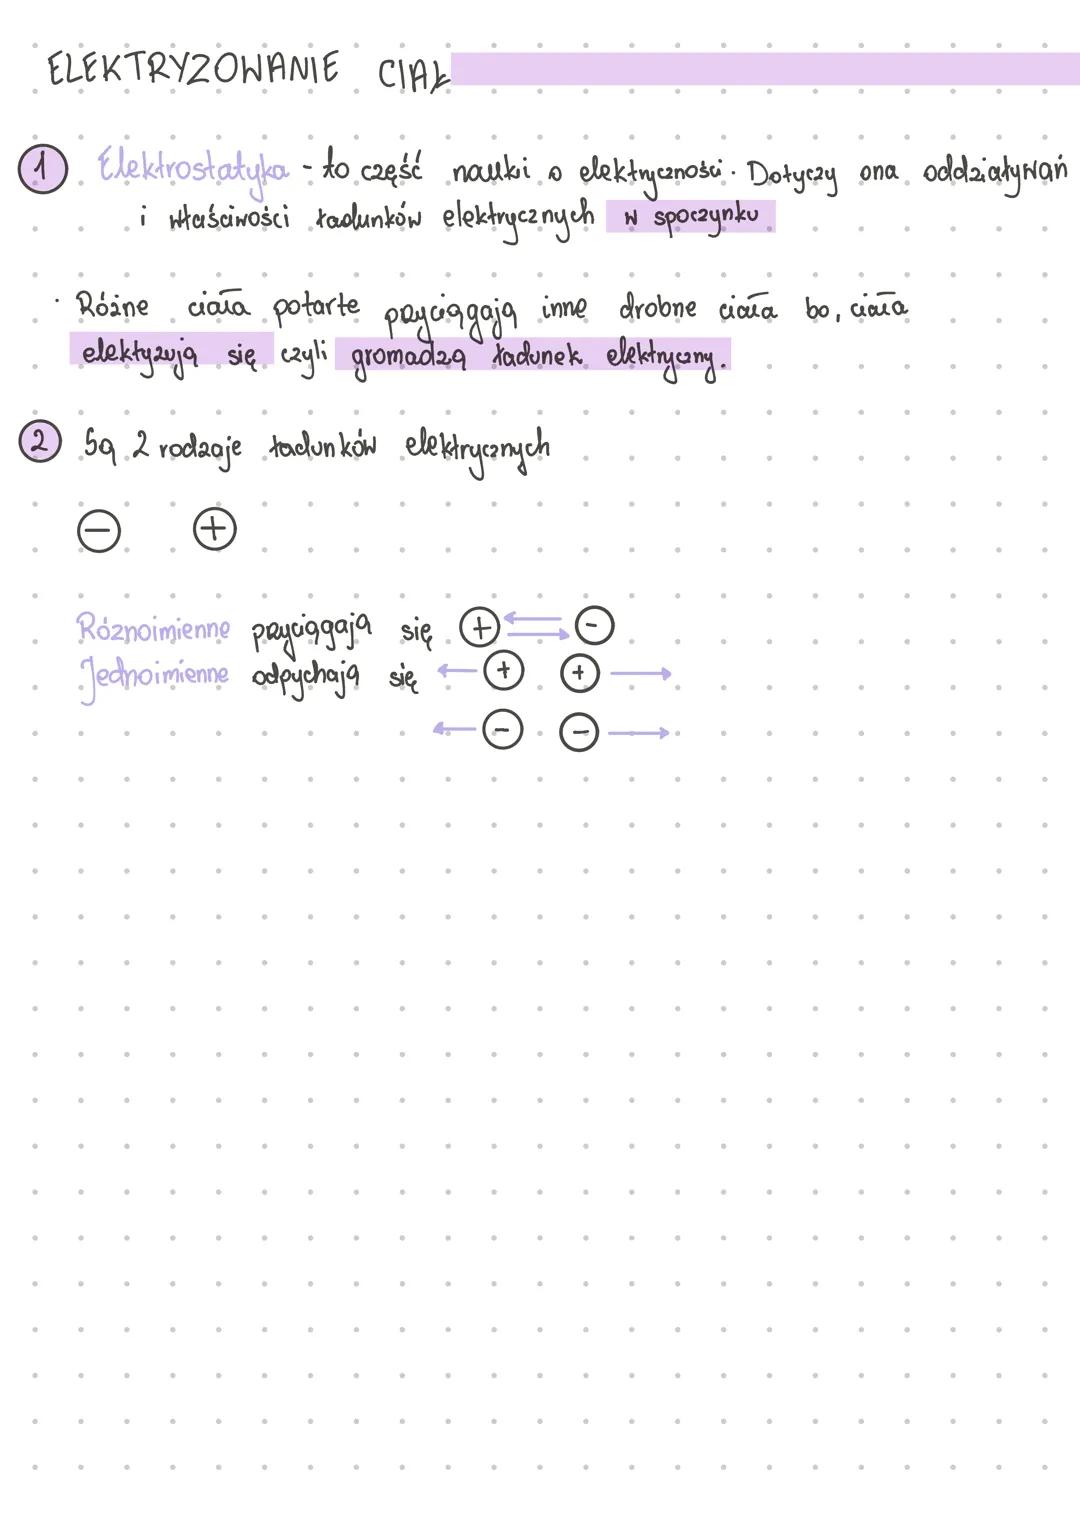 ELEKTRYZOWANIE CIAŁ
1 Elektrostatyka - to część nauki o elektryczności. Dotyczy ona oddziaływań
i właściwości ładunków elektrycznych w spoczynku
· Różne ciała potarte przyciągają inne drobne ciała bo, ciała
elektyzują się czyli gromadzą ładunek elektryczny.
2 Są 2 rodzaje ładunków elektrycznych
- +
Róznoimienne przyciągają się + -
Jednoimienne odpychają się + +
- -